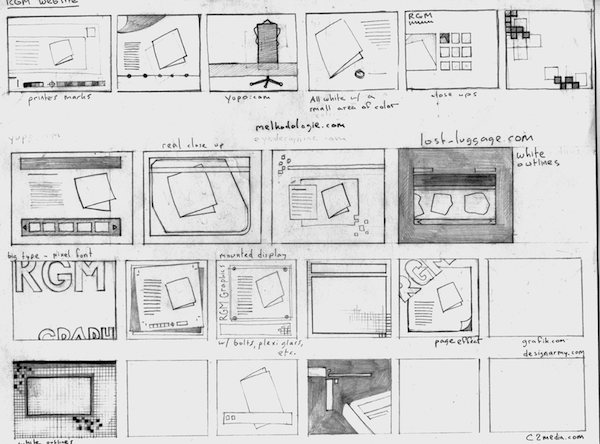 RGM WEBSITE
RGM
printers marks
yupo.com
All white w/ a
small area of color
close ups
methodologie.com
yupo.com
real close up
lost-luggage.com
white
outlines
big type - pixel font
mounted display
RGM
GRAPH
RGM Graphics
RGM
w/ bolts, plexi glass,
etc.
page effect
grafik.com
designarmy.com
white outlines
C2media.com